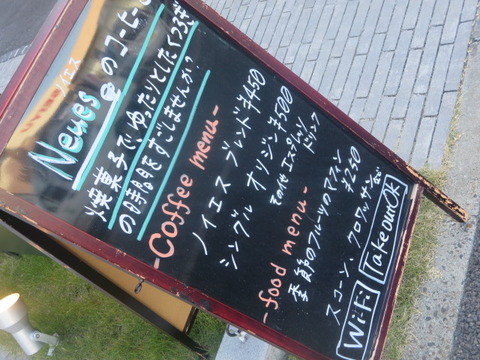 ノイエス
Neues のコーヒーと
焼菓子で ゆったりとしたくつろぎ
の時間をすごしませんか?
-Coffee menu-
ノイエス ブレンド ¥450
シングル オリジン ¥500
その他 エスプレッソ
ドリンク
-food menu-
季節のフルーツのマフィン
¥250
スコーン、クロワッサン など
Wi-Fi Take out OK